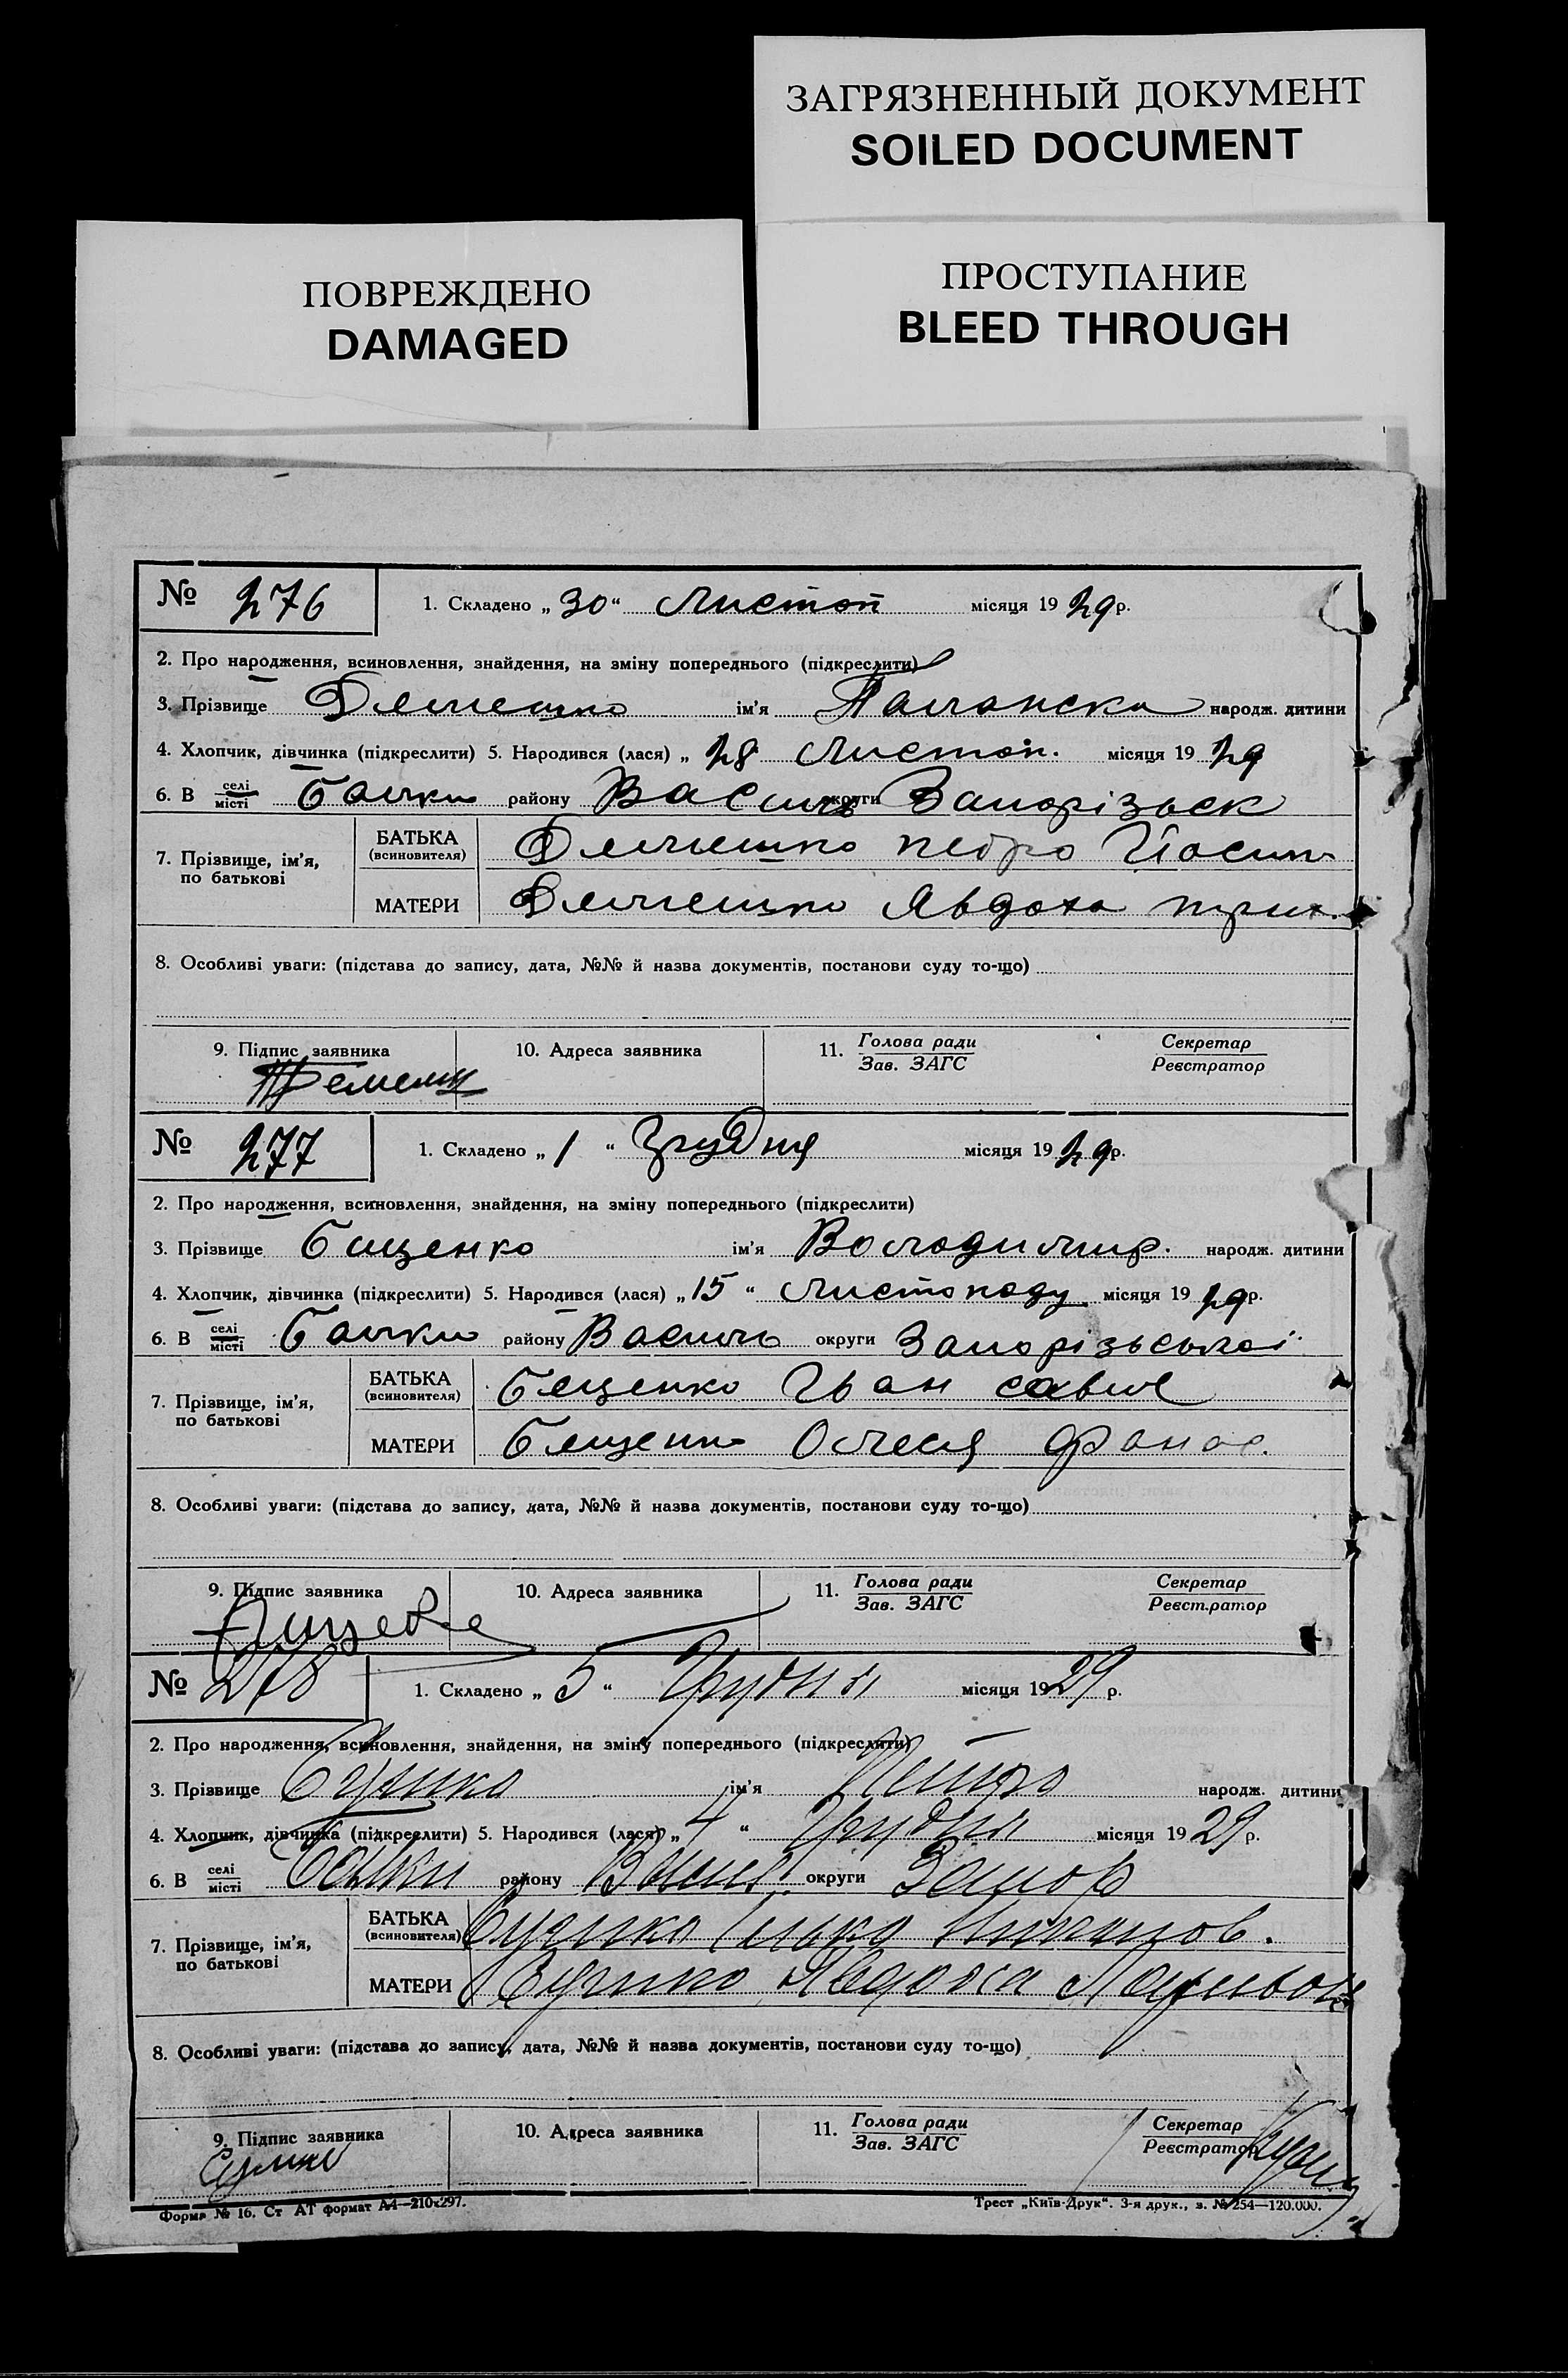 ЗАГРЯЗНЕННЫЙ ДОКУМЕНТ
SOILED DOCUMENT
ПОВРЕЖДЕНО
DAMAGED
ПРОСТУПАНИЕ
BLEED THROUGH
№ 276 1. Складено „ 30 “ Листоп місяця 19 29 р.
2. Про народження, всиновлення, знайдення, на зміну попереднього (підкреслити)
3. Прізвище ім'я народж. дитини
4. Хлопчик, дівчинка (підкреслити) 5. Народився (лася) „ 28 Листоп. місяця 19 29
6. В селі місті Балки району Василь округи Запорізьск
7. Прізвище, ім'я, по батькові
БАТЬКА (всиновителя) Йосип
МАТЕРИ Явдоха
8. Особливі уваги: (підстава до запису, дата, №№ й назва документів, постанови суду то-що)
9. Підпис заявника 10. Адреса заявника 11. Голова ради Зав. ЗАГС Секретар Реєстратор
№ 277 1. Складено „ 1 “ Грудня місяця 19 29 р.
2. Про народження, всиновлення, знайдення, на зміну попереднього (підкреслити)
3. Прізвище Бищенко ім'я Володимир. народж. дитини
4. Хлопчик, дівчинка (підкреслити) 5. Народився (лася) „ 15 “ Листопаду місяця 19 29 р.
6. В селі місті Балки району Василь округи Запорізьської
7. Прізвище, ім'я, по батькові
БАТЬКА (всиновителя) Іван савич
МАТЕРИ Олеся Фанас.
8. Особливі уваги: (підстава до запису, дата, №№ й назва документів, постанови суду то-що)
9. Підпис заявника 10. Адреса заявника 11. Голова ради Зав. ЗАГС Секретар Реєстратор
№ 278 1. Складено „ 5 “ Грудня місяця 19 29 р.
2. Про народження, всиновлення, знайдення, на зміну попереднього (підкреслити)
3. Прізвище ім'я Петро народж. дитини
4. Хлопчик, дівчинка (підкреслити) 5. Народився (лася) „ 4 “ Грудня місяця 19 29 р.
6. В селі місті Балки району Васил. округи Запор
7. Прізвище, ім'я, по батькові
БАТЬКА (всиновителя)
МАТЕРИ Явдоха
8. Особливі уваги: (підстава до запису, дата, №№ й назва документів, постанови суду то-що)
9. Підпис заявника 10. Адреса заявника 11. Голова ради Зав. ЗАГС Секретар Реєстратор
Форма № 16. Ст АТ формат А4—210х297. Трест „Київ-Друк“. 3-я друк., з. № 254—120.000.